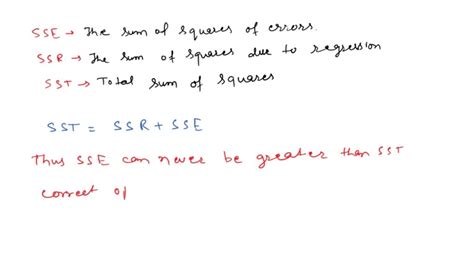 SSE → The sum of squares of errors.
SSR → The sum of squares due to regression
SST → Total sum of squares
SST = SSR + SSE
Thus SSE can never be greater than SST
correct op